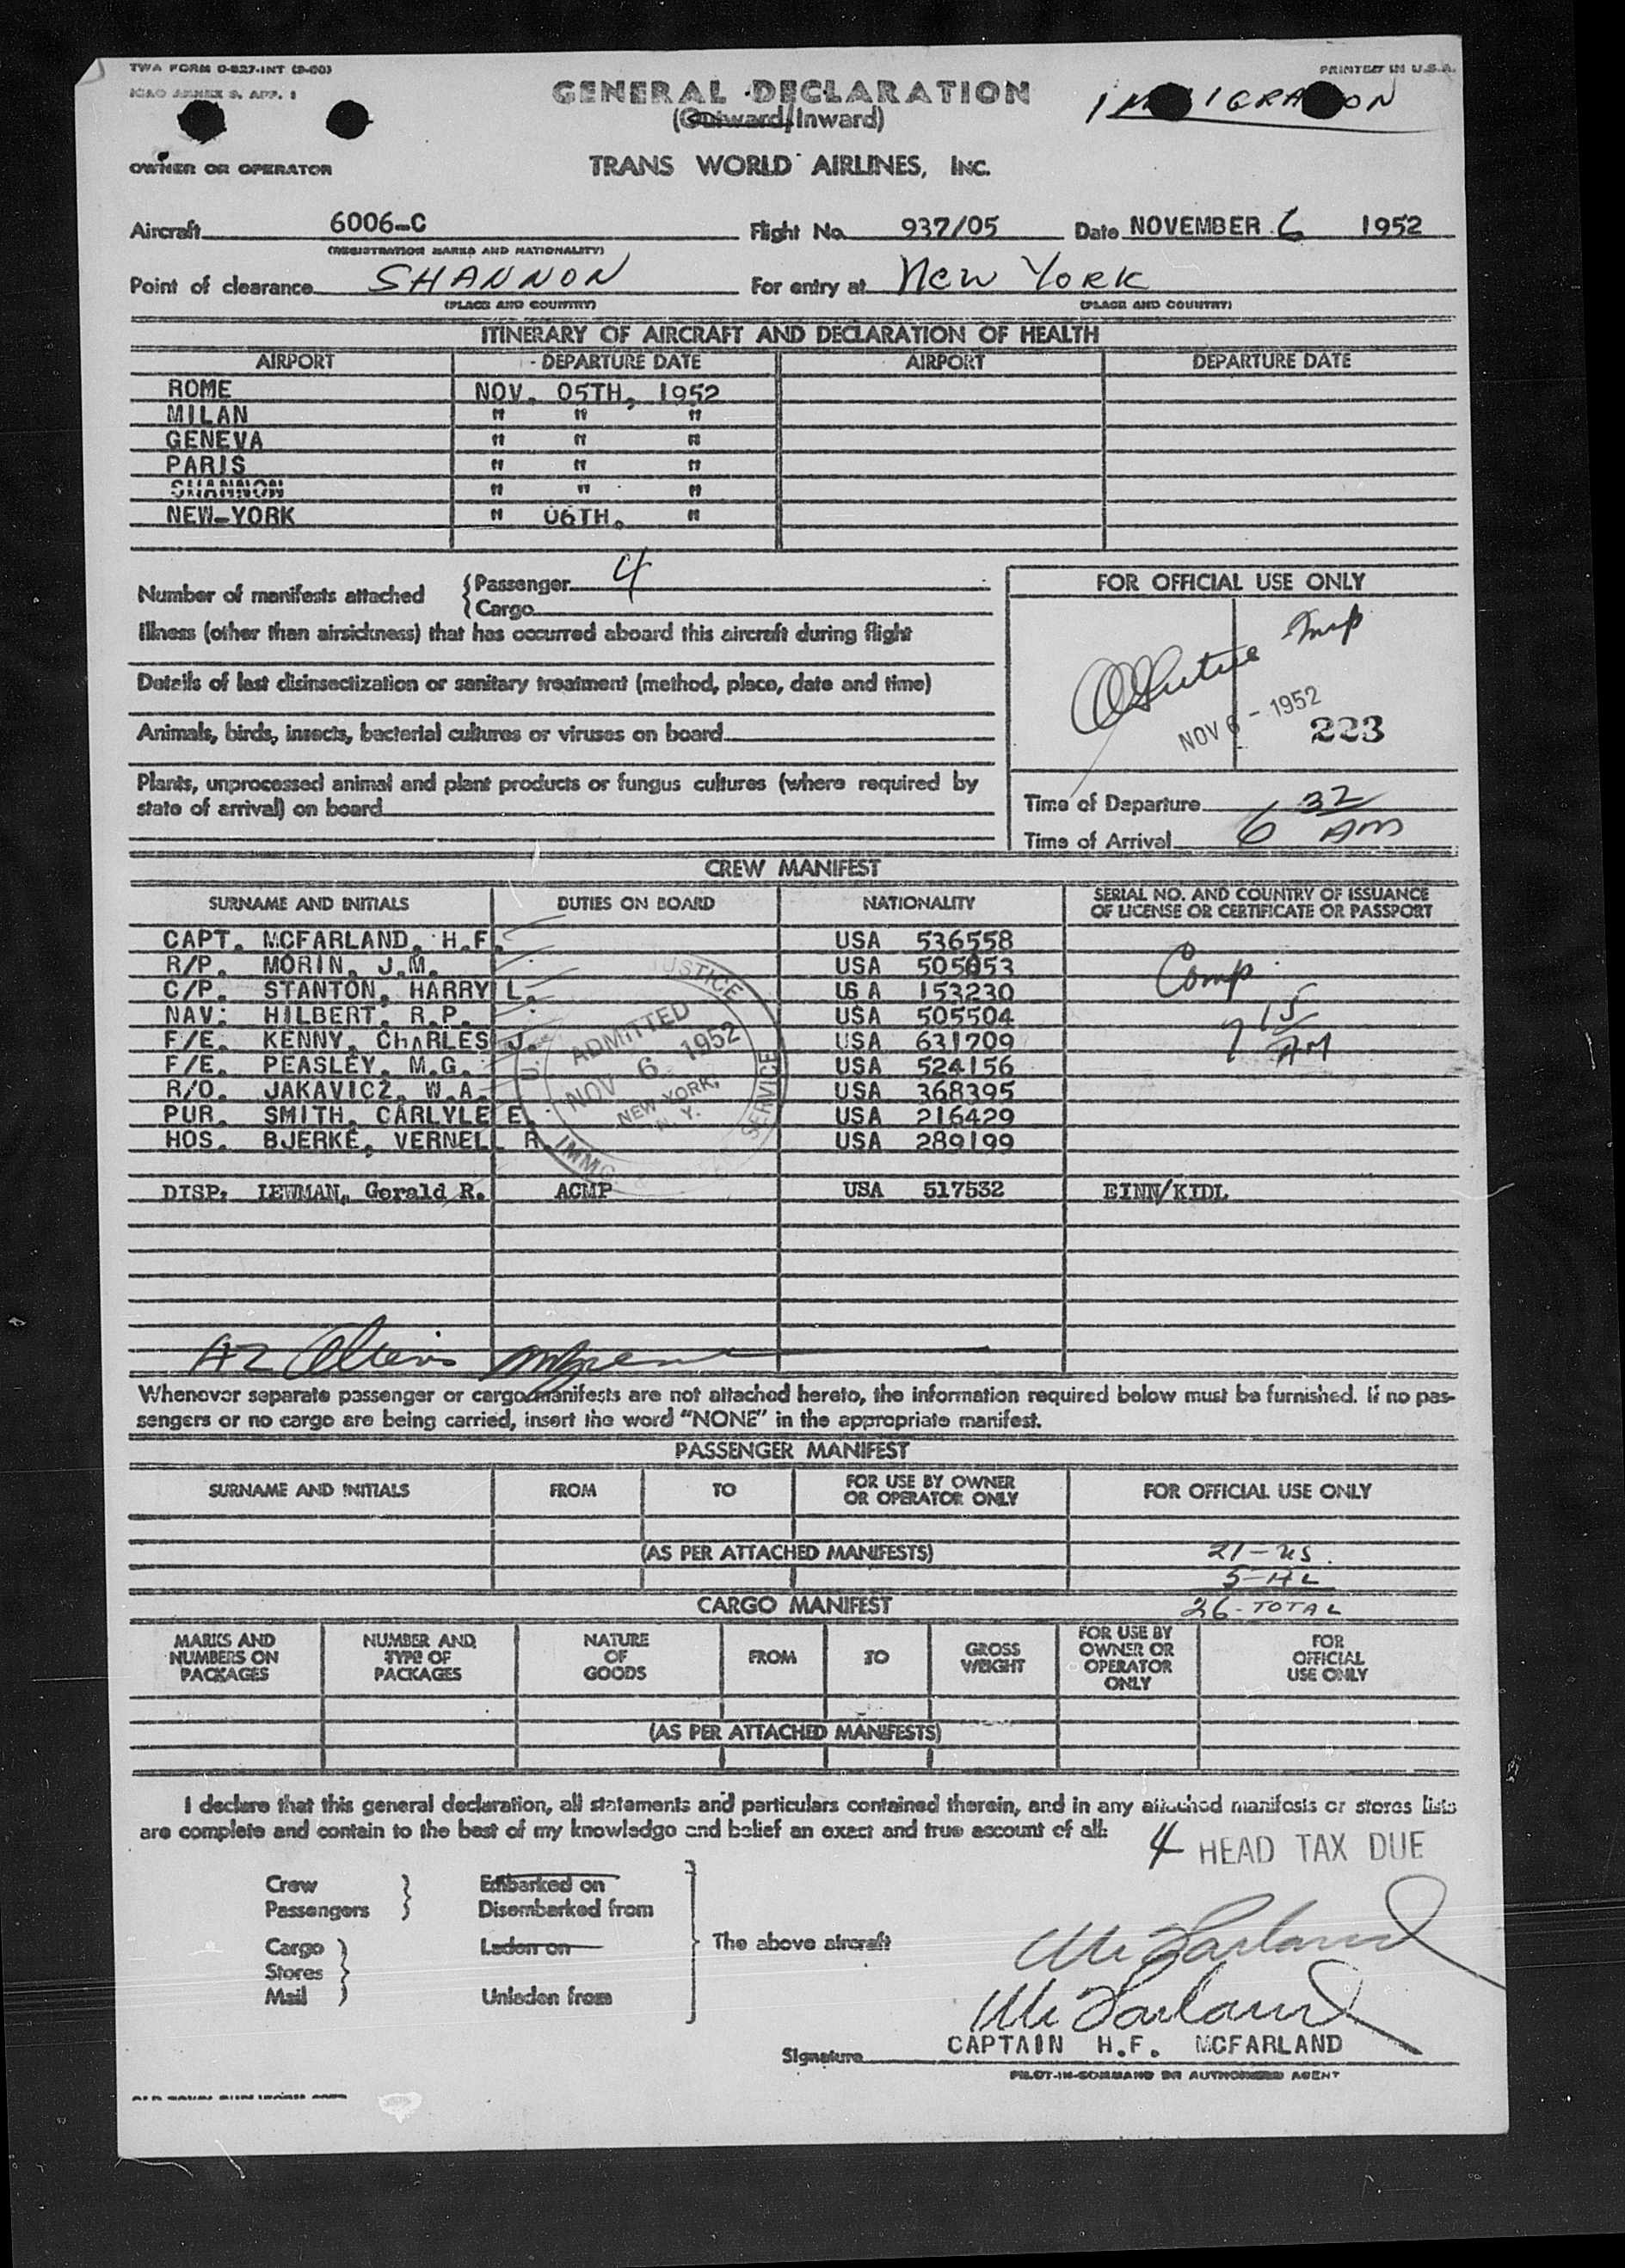 TWA FORM O-827-INT
PRINTED IN U.S.A.
ICAO ANNEX 9, APP. 1
GENERAL DECLARATION
(Outward/Inward)
IMMIGRATION
OWNER OR OPERATOR
TRANS WORLD AIRLINES, INC.
Aircraft 6006-C Flight No. 937/05 Date NOVEMBER 6 1952
(REGISTRATION MARKS AND NATIONALITY)
Point of clearance SHANNON For entry at New York
(PLACE AND COUNTRY) (PLACE AND COUNTRY)
ITINERARY OF AIRCRAFT AND DECLARATION OF HEALTH
AIRPORT DEPARTURE DATE AIRPORT DEPARTURE DATE
ROME NOV. 05TH, 1952
MILAN " " "
GENEVA " " "
PARIS " " "
SHANNON " " "
NEW-YORK " 06TH. "
Number of manifests attached { Passenger 4
{ Cargo
FOR OFFICIAL USE ONLY
Illness (other than airsickness) that has occurred aboard this aircraft during flight
Details of last disinsectization or sanitary treatment (method, place, date and time)
NOV 6 - 1952
223
Animals, birds, insects, bacterial cultures or viruses on board
Plants, unprocessed animal and plant products or fungus cultures (where required by
state of arrival) on board
Time of Departure
Time of Arrival 6 32 AM
CREW MANIFEST
SURNAME AND INITIALS DUTIES ON BOARD NATIONALITY SERIAL NO. AND COUNTRY OF ISSUANCE
OF LICENSE OR CERTIFICATE OR PASSPORT
CAPT. MCFARLAND, H.F. USA 536558
R/P. MORIN, J.M. USA 505053
C/P. STANTON, HARRY L. US A 153230
NAV: HILBERT, R.P. USA 505504
F/E. KENNY, ChARLES J. USA 631709
F/E. PEASLEY, M.G. USA 524156
R/O. JAKAVICZ, W.A. USA 368395
PUR. SMITH, CARLYLE E. USA 216429
HOS. BJERKE, VERNELL R. USA 289199
Comp
7 15 AM
ADMITTED
NOV 6 1952
NEW YORK,
N. Y.
DISP: LEWMAN, Gerald R. ACMP USA 517532 EINN/KIDL
Whenever separate passenger or cargo manifests are not attached hereto, the information required below must be furnished. If no pas-
sengers or no cargo are being carried, insert the word "NONE" in the appropriate manifest.
PASSENGER MANIFEST
SURNAME AND INITIALS FROM TO FOR USE BY OWNER
OR OPERATOR ONLY FOR OFFICIAL USE ONLY
(AS PER ATTACHED MANIFESTS) 21-US.
5-AL
CARGO MANIFEST 26-TOTAL
MARKS AND
NUMBERS ON
PACKAGES
NUMBER AND
TYPE OF
PACKAGES
NATURE
OF
GOODS
FROM TO
GROSS
WEIGHT
FOR USE BY
OWNER OR
OPERATOR
ONLY
FOR
OFFICIAL
USE ONLY
(AS PER ATTACHED MANIFESTS)
I declare that this general declaration, all statements and particulars contained therein, and in any attached manifests or stores lists
are complete and contain to the best of my knowledge and belief an exact and true account of all:
4 HEAD TAX DUE
Crew Embarked on
Passengers Disembarked from
Cargo Laden on The above aircraft
Stores
Mail Unladen from
McFarland
McFarland
CAPTAIN H.F. MCFARLAND
Signature
PILOT-IN-COMMAND OR AUTHORIZED AGENT